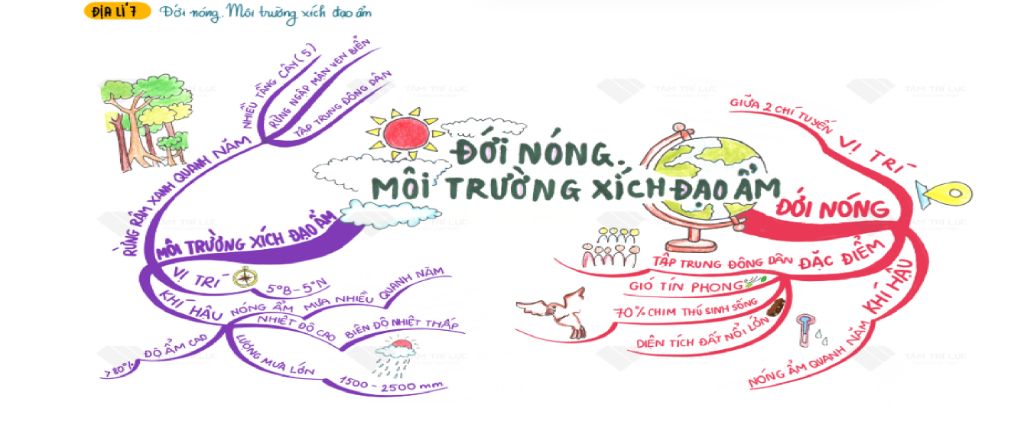 ĐỊA LÍ 7 Đới nóng. Môi trường xích đạo ẩm
ĐỚI NÓNG.
MÔI TRƯỜNG XÍCH ĐẠO ẨM
ĐỚI NÓNG
VỊ TRÍ
GIỮA 2 CHÍ TUYẾN
ĐẶC ĐIỂM
TẬP TRUNG ĐÔNG DÂN
GIÓ TÍN PHONG
70% CHIM THÚ SINH SỐNG
DIỆN TÍCH ĐẤT NỔI LỚN
KHÍ HẬU
NÓNG ẨM QUANH NĂM
MÔI TRƯỜNG XÍCH ĐẠO ẨM
RỪNG RẬM XANH QUANH NĂM
NHIỀU TẦNG CÂY (5)
RỪNG NGẬP MẶN VEN BIỂN
TẬP TRUNG ĐÔNG DÂN
VỊ TRÍ
5°B - 5°N
KHÍ HẬU
NÓNG ẨM MƯA NHIỀU QUANH NĂM
NHIỆT ĐỘ CAO
BIÊN ĐỘ NHIỆT THẤP
LƯỢNG MƯA LỚN
1500 - 2500 mm
ĐỘ ẨM CAO
>80%
TÂM TRÍ LỰC
TÂM TRÍ LỰC
TÂM TRÍ LỰC
TÂM TRÍ LỰC